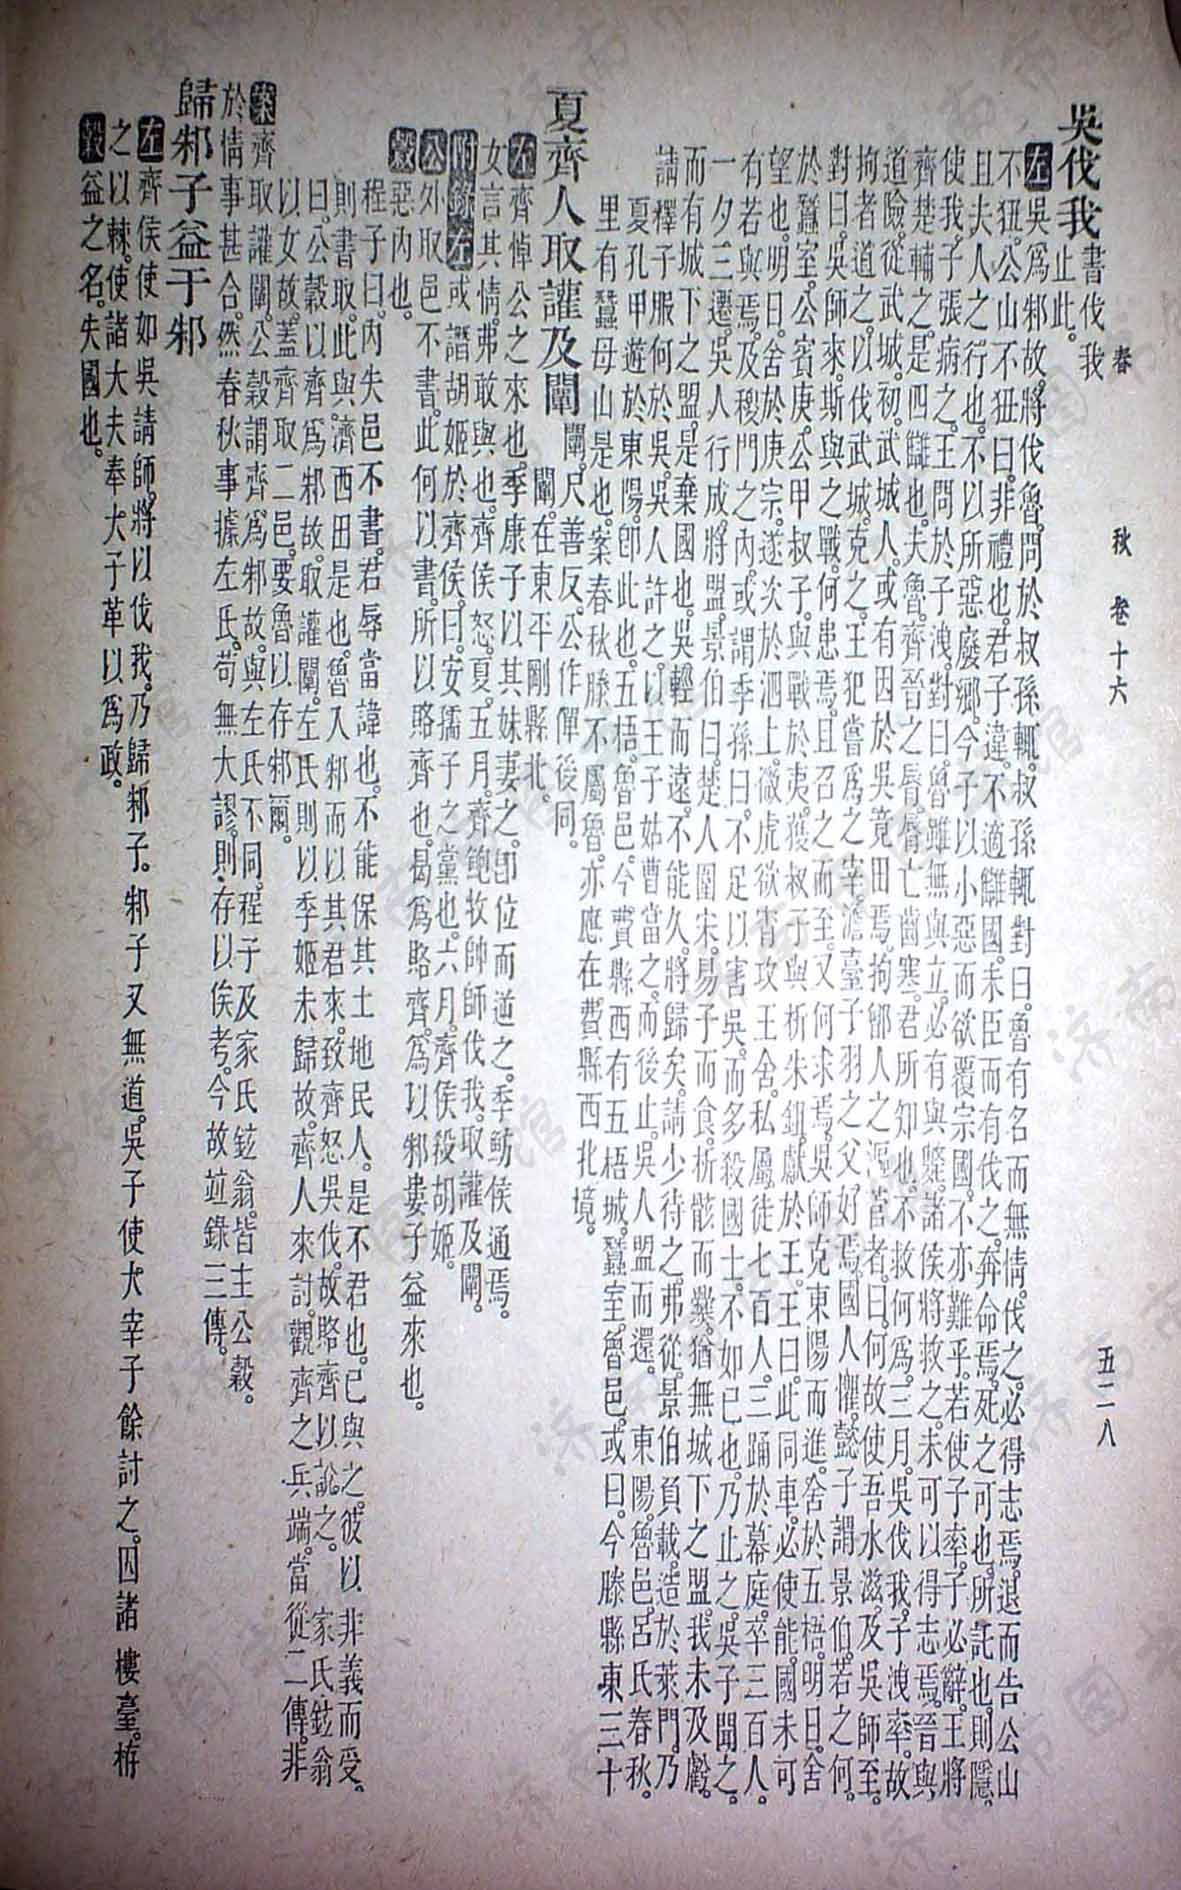 春　秋　卷十六　五二八
吳伐我書伐我
止此。
左吳爲邾故。將伐魯。問於叔孫輒。叔孫輒對曰。魯有名而無情。伐之。必得志焉。退而告公山
不狃。公山不狃曰。非禮也。君子違。不適讎國。未臣而有伐之。奔命焉。死之可也。所託也。則隱。
且夫人之行也。不以所惡廢鄉。今子以小惡而欲覆宗國。不亦難乎。若使子率。子必辭。王將
使我。子張病之。王問於子洩。對曰。魯雖無與立。必有與斃。諸侯將救之。未可以得志焉。晉與
齊楚輔之。是四讎也。夫魯。齊晉之脣。脣亡齒寒。君所知也。不救何爲。三月。吳伐我。子洩率。故
道險。從武城。初。武城人。或有因於吳竟田焉。拘鄫人之漚菅者。曰。何故使吾水滋。及吳師至。
拘者道之。以伐武城。克之。王犯嘗爲之宰。澹臺子羽之父。好焉。國人懼。懿子謂景伯。若之何。
對曰。吳師來。斯與之戰。何患焉。且召之而至。又何求焉。吳師克東陽而進。舍於五梧。明日。舍
於蠶室。公賓庚。公甲叔子。與戰於夷。獲叔子與析朱鉏。獻於王。王曰。此同車。必使能。國未可
望也。明日。舍於庚宗。遂次於泗上。微虎欲宵攻王舍。私屬徒七百人。三踊於幕庭。卒三百人。
有若與焉。及稷門之內。或謂季孫曰。不足以害吳。而多殺國士。不如已也。乃止之。吳子聞之。
一夕三遷。吳人行成。將盟。景伯曰。楚人圍宋。易子而食。析骸而爨。猶無城下之盟。我未及虧。
而有城下之盟。是棄國也。吳輕而遠。不能久。將歸矣。請少待之。弗從。景伯負載。造於萊門。乃
請釋子服何於吳。吳人許之。以王子姑曹當之。而後止。吳人盟而還。東陽。魯邑。呂氏春秋。
夏孔甲遊於東陽。卽此也。五梧。魯邑。今費縣西有五梧城。蠶室。魯邑。或曰。今滕縣東三十
里有蠶母山是也。案春秋滕不屬魯。亦應在費縣西北境。
夏齊人取讙及闡闡。尺善反。公作僤。後同。
闡。在東平剛縣北。
左齊悼公之來也。季康子以其妹妻之。卽位而逆之。季魴侯通焉。
女言其情。弗敢與也。齊侯怒。夏五月。齊鮑牧帥師伐我。取讙及闡。
附錄左或譖胡姬於齊侯曰。安孺子之黨也。六月。齊侯殺胡姬。
公外取邑不書。此何以書。所以賂齊也。曷爲賂齊。爲以邾婁子益來也。
穀惡內也。
程子曰。內失邑不書。君辱當諱也。不能保其土地民人。是不君也。已與之。彼以非義而受。
則書取。此與濟西田是也。魯入邾而以其君來。致齊怒吳伐。故賂齊以說之。家氏鉉翁
曰。公穀以齊爲邾故。取讙闡。左氏則以季姬未歸故。齊人來討。觀齊之兵端。當從二傳。非
以女故。蓋齊取二邑。要魯以存邾爾。
案齊取讙闡。公穀謂齊爲邾故。與左氏不同。程子及家氏鉉翁。皆主公穀。
於情事甚合。然春秋事據左氏。苟無大謬。則存以俟考。今故竝錄三傳。
歸邾子益于邾
左齊侯使如吳請師。將以伐我。乃歸邾子。邾子又無道。吳子使大宰子餘討之。囚諸樓臺。栫
之以棘。使諸大夫奉大子革以爲政。
穀益之名。失國也。